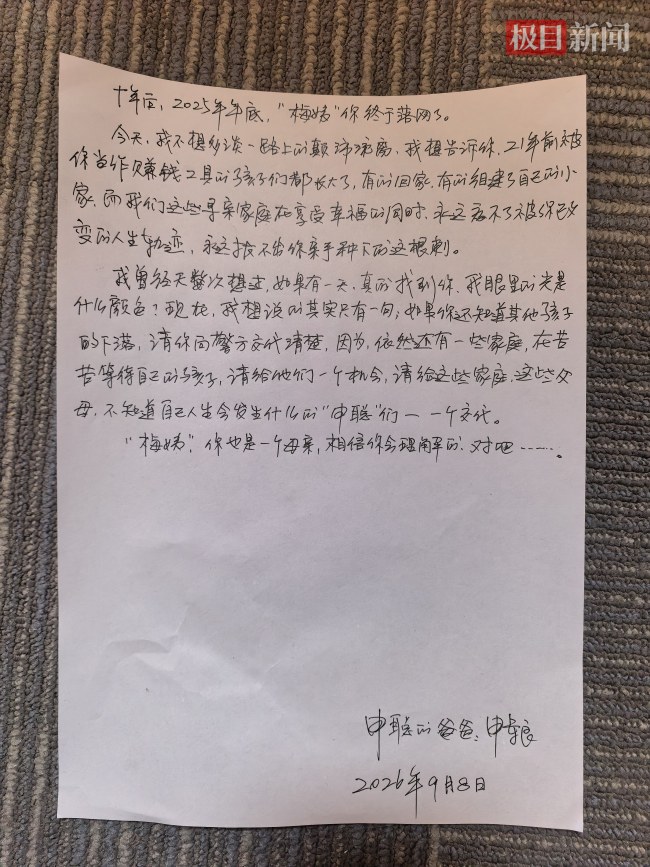 极目新闻
十年后，2025年年底，“梅姨”你终于落网了。
今天，我不想多谈一路上的颠沛流离，我想告诉你，21年前被
你当作赚钱工具的孩子们都长大了，有的回家，有的组建了自己的小
家，而我们这些寻亲家庭在享受幸福的同时，永远忘不了被你改
变的人生轨迹，永远拔不出你亲手种下的这根刺。
我曾经无数次想过，如果有一天，真的找到你，我眼里的光是
什么颜色？现在，我想说的其实只有一句：如果你还知道其他孩子
的下落，请你向警方交代清楚，因为，依然还有一些家庭，在苦
苦等待自己的孩子，请给他们一个机会，请给这些家庭、这些父
母、不知道自己人生会发生什么的“申聪”们一一个交代。
“梅姨”，你也是一个母亲，相信你会理解的，对吧……。
申聪的爸爸：申军良
2026年9月8日